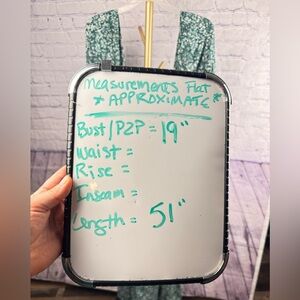 Measurements Flat
* APPROXIMATE *
Bust/P2P = 19"
Waist =
Rise =
Inseam =
Length = 51"